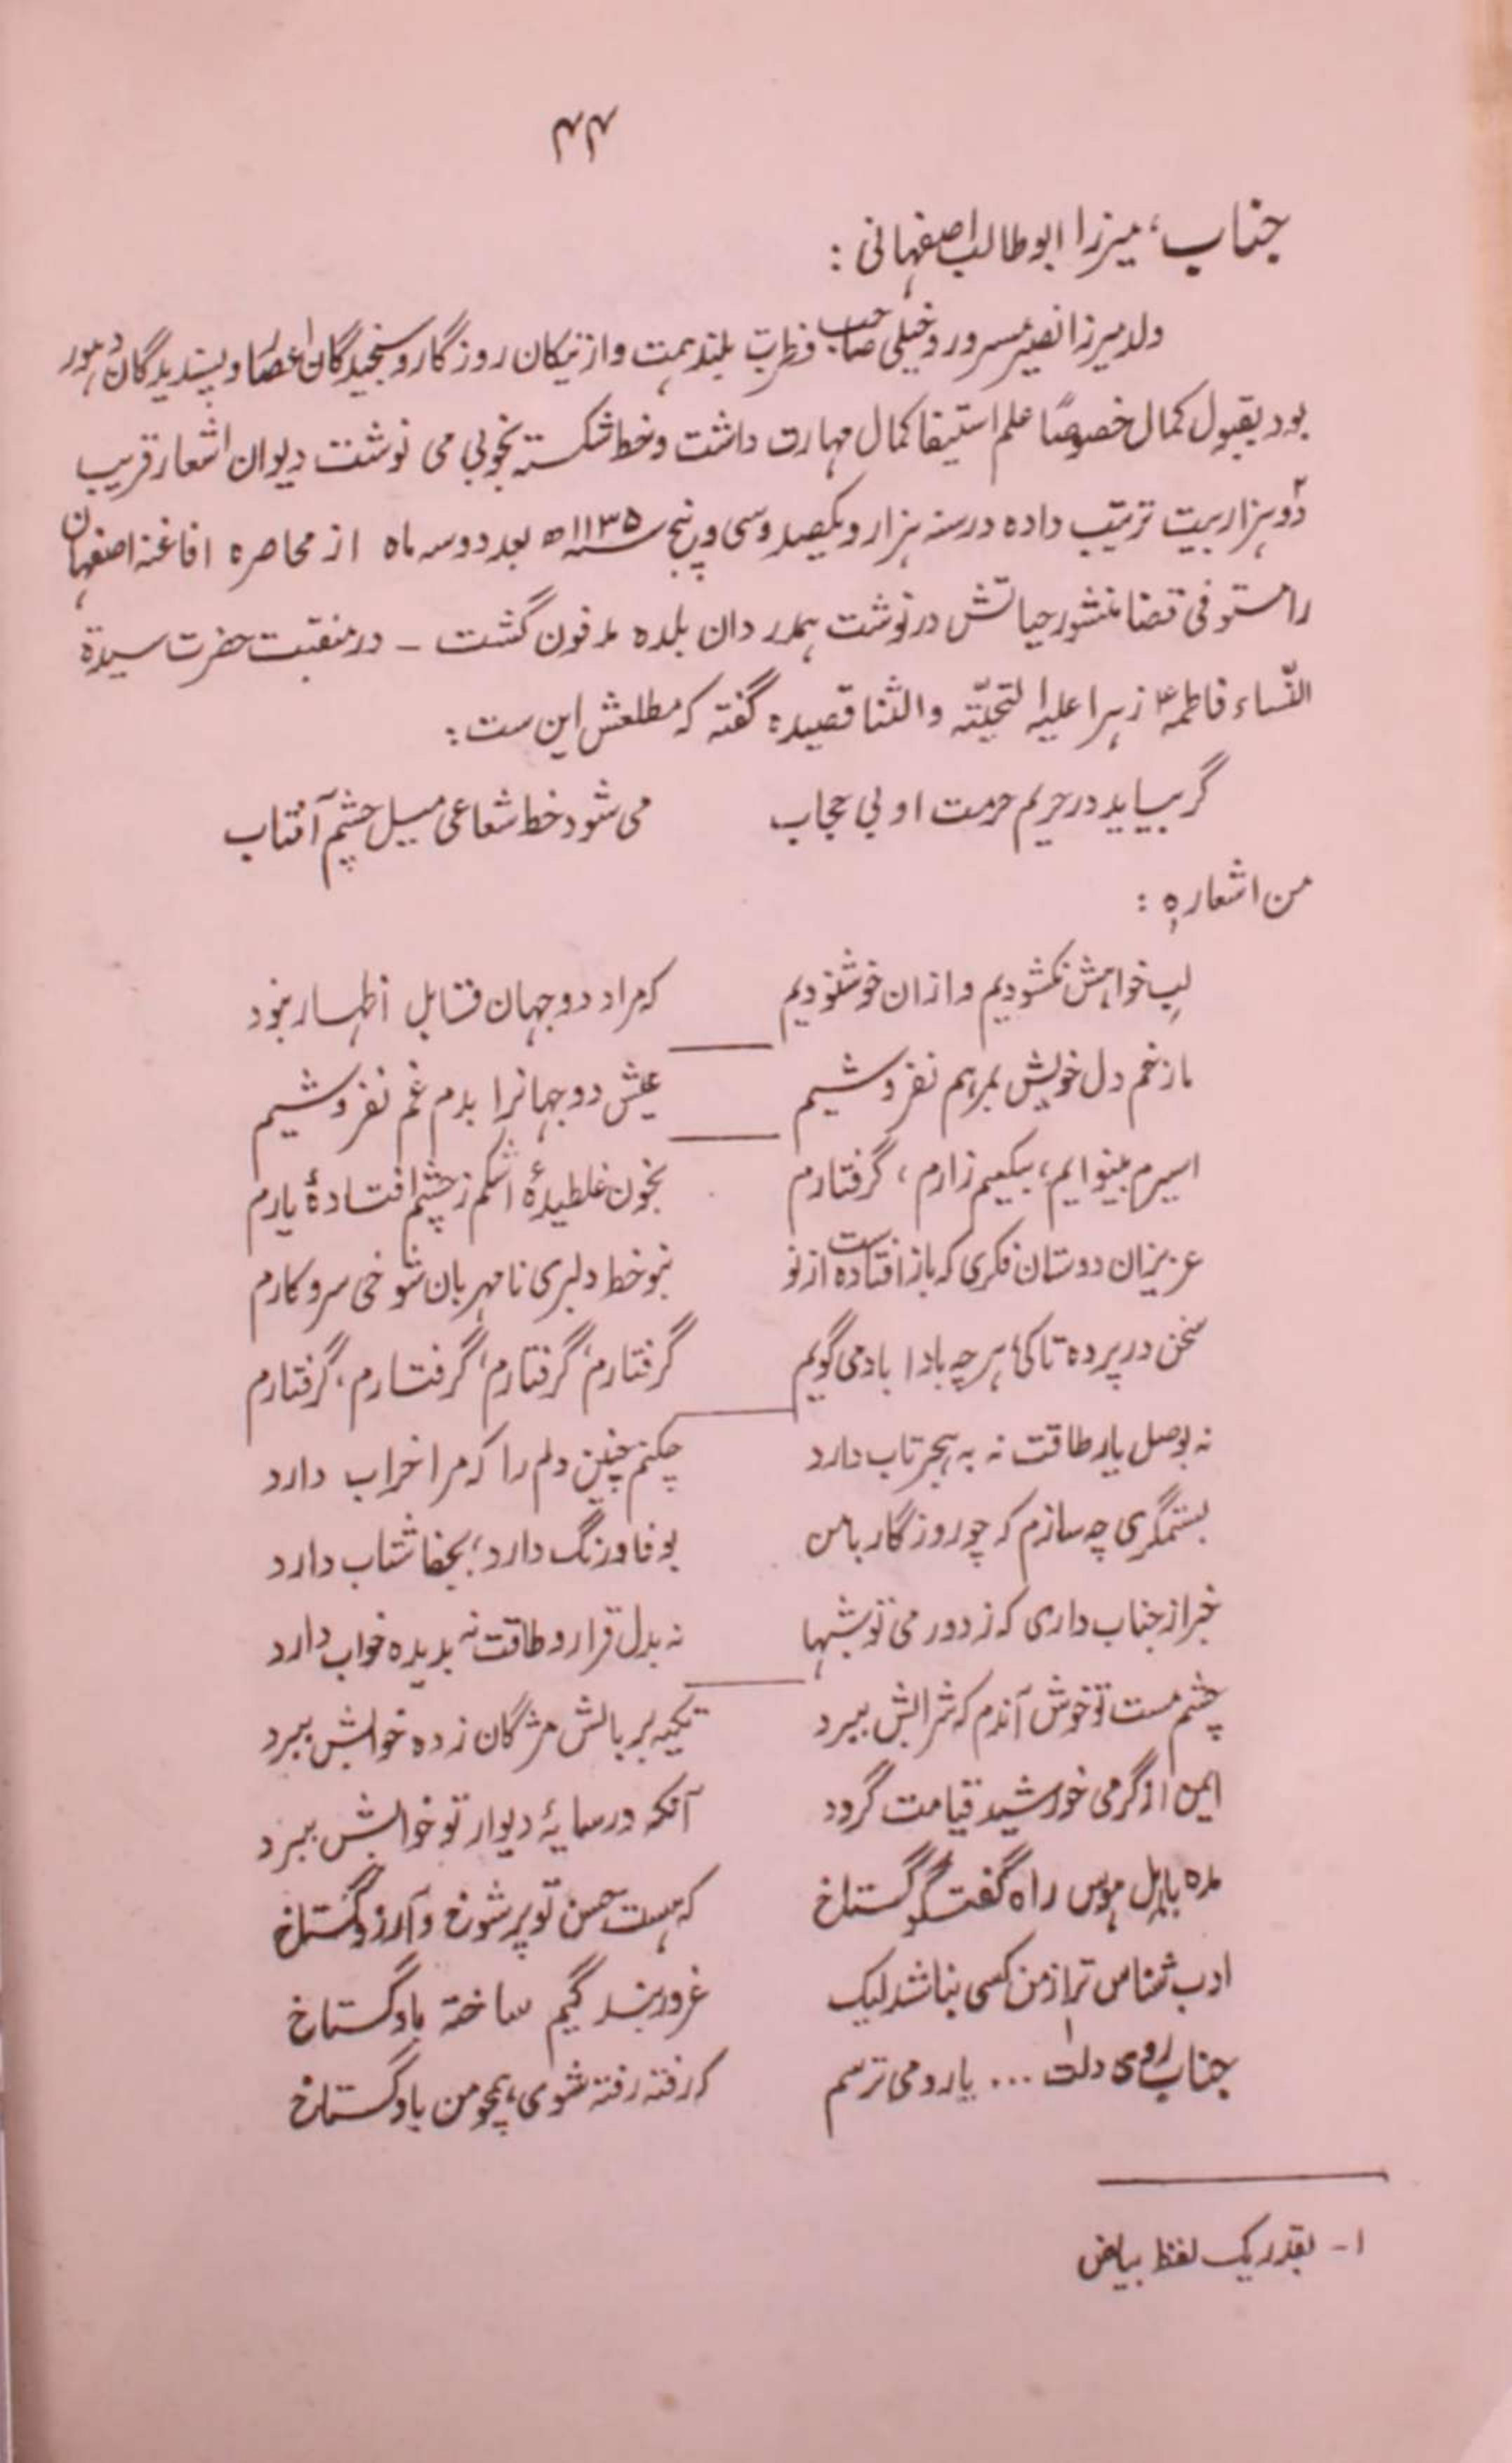 ۴۴
جناب، میرزا ابوطالب اصفہانی :
ولد میرزا نصیر مسرور و خیلی صاحب فطرت بلند ہمت و از نیکان روزگار و سنجیدگان اعصار و پسندیدگان دہور
بود بقبول کمال خصوصًا علم استیفا کمال مہارت داشت و خط شکستہ بخوبی می نوشت دیوان اشعار قریب
دو ہزار بیت ترتیب دادہ در سنہ ہزار و یکصد و سی و پنج سنہ ۱۱۳۵ھ بعد دو سہ ماہ از محاصرہ افاغنہ اصفہان
را مستوفی قضا منشور حیاتش در نوشت ہمدر دان بلدہ مدفون گشت ـ در منقبت حضرت سیدۃ
النّساء فاطمہؑ زہرا علیہا التحیّتہ والثنا قصیدہ گفتہ کہ مطلعش این ست :
گر بیاید در حریم حرمت او بی حجاب می شود خط شعاعی میل چشم آفتاب
من اشعارہٖ :
لب خواہش نکشودیم و ازان خوشنودیم کہ مراد دو جہان قابل اظہار نبود
ما زخم دل خویش بمرہم نفروشیم عیش دو جہانرا بدم غم نفروشیم
اسیرم بینوایم، بیکسیم زارم، گرفتارم بخون غلطیدۂ اشکم ز چشم افتادۂ یارم
عزیزان دوستان فکری کہ باز افتادہ است از نو بنو خط دلبری نامہربان شوخی سروکارم
سخن در پردہ تا کی، ہر چہ بادا باد می گویم گرفتارم، گرفتارم، گرفتارم، گرفتارم
نہ بوصل یار طاقت نہ بہ ہجر تاب دارد چکنم چنین دلم را کہ مرا خراب دارد
بستمگری چہ سازم کہ چو روزگار با من بوفا درنگ دارد، بجفا شتاب دارد
خبر از جناب داری کہ ز دوری تو شبہا نہ بدل قرار و طاقت نہ بدیدہ خواب دارد
چشم مست تو خوش آندم کہ شرابش ببرد تکیہ بر بالش مژگان زدہ خوابش ببرد
ایمن از گرمی خورشید قیامت گردد آنکہ در سایۂ دیوار تو خوابش ببرد
مدہ باہل ہوس راہ گفتگو گستاخ کہ ہست حسن تو پر شوخ و آرزو گستاخ
ادب شناس تر از من کسی نباشد لیک غرور بندگیم ساختہ باو گستاخ
جناب روی دلت ... ۱ یارو می ترسم کہ رفتہ رفتہ شوی، ہمچو من باو گستاخ
۱- بقدر یک لفظ بیاض